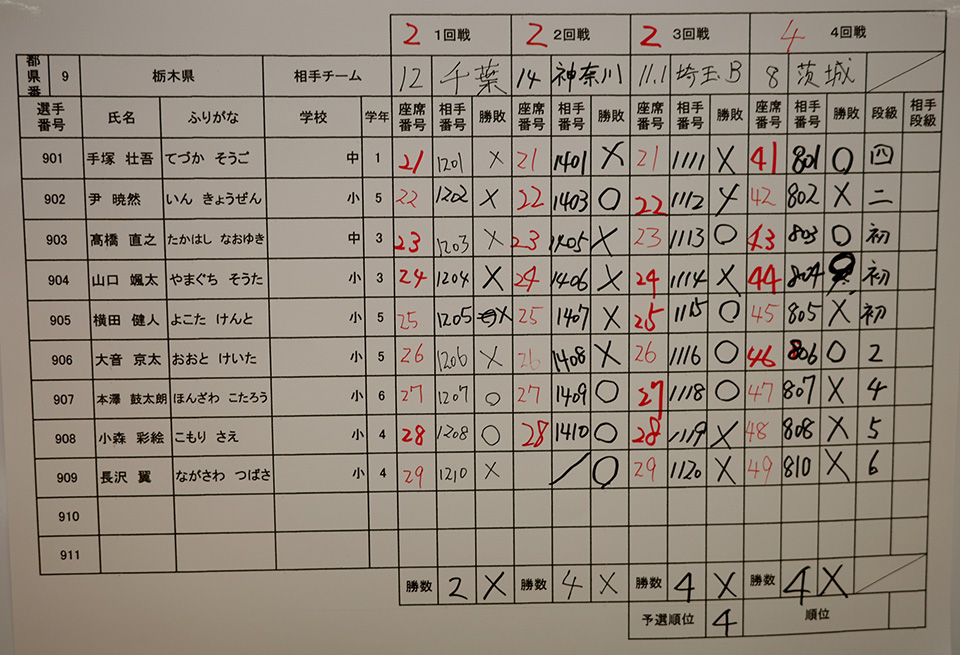 2 1回戦 2 2回戦 2 3回戦 4 4回戦
都県番 9 栃木県 相手チーム 12 千葉 14 神奈川 11.1 埼玉B 8 茨城
選手番号 氏名 ふりがな 学校 学年 座席番号 相手番号 勝敗 座席番号 相手番号 勝敗 座席番号 相手番号 勝敗 座席番号 相手番号 勝敗 段級 相手段級
901 手塚 壮吾 てづか そうご 中 1 21 1201 × 21 1401 × 21 1111 × 41 801 ○ 四
902 尹 暁然 いん きょうぜん 小 5 22 1202 × 22 1403 ○ 22 1112 × 42 802 × 二
903 髙橋 直之 たかはし なおゆき 中 3 23 1203 × 23 1405 × 23 1113 ○ 43 803 ○ 初
904 山口 颯太 やまぐち そうた 小 3 24 1204 × 24 1406 × 24 1114 × 44 804 ○ 初
905 横田 健人 よこた けんと 小 5 25 1205 × 25 1407 × 25 1115 ○ 45 805 × 初
906 大音 京太 おおと けいた 小 5 26 1206 × 26 1408 × 26 1116 ○ 46 806 ○ 2
907 本澤 鼓太朗 ほんざわ こたろう 小 6 27 1207 ○ 27 1409 ○ 27 1118 ○ 47 807 × 4
908 小森 彩絵 こもり さえ 小 4 28 1208 ○ 28 1410 ○ 28 1119 × 48 808 × 5
909 長沢 翼 ながさわ つばさ 小 4 29 1210 × / ○ 29 1120 × 49 810 × 6
910
911
勝数 2 × 勝数 4 × 勝数 4 × 勝数 4 ×
予選順位 4 順位